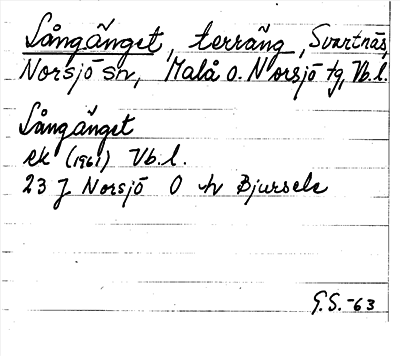 Långänget, terräng, Svartnäs,
Norsjö sn, Malå o. Norsjö tg, Vb.l.
Långänget
ek (1961) Vb.l.
23 J Norsjö O tv Bjursele
G.S.-63